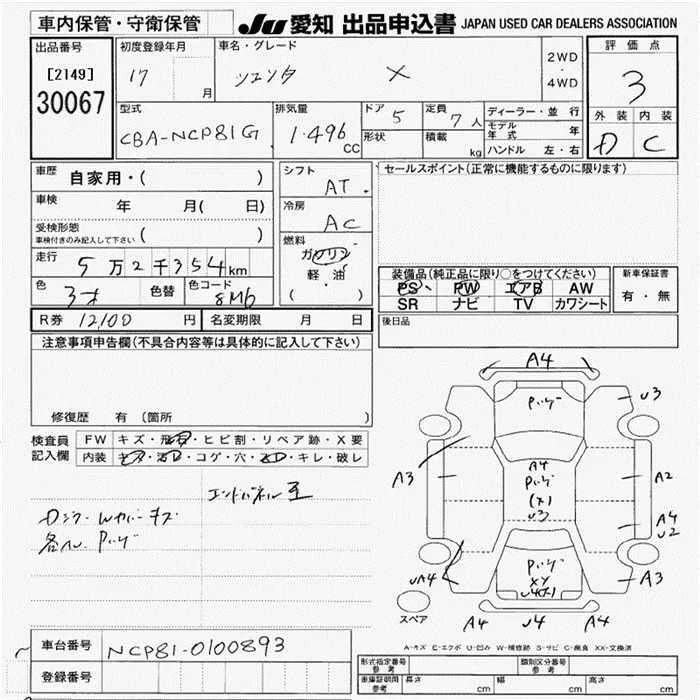 車内保管・守衛保管
JU 愛知 出品申込書 JAPAN USED CAR DEALERS ASSOCIATION
出品番号
[2149]
30067
初度登録年月
17 月
車名・グレード
シエンタ X
2WD
・
4WD
評価点
3
外装 内装
D C
型式
CBA-NCP81G
排気量
1.496 CC
ドア 5
形状
定員 7人
積載 kg
ディーラー・並行
モデル年式 年
ハンドル 左・右
車歴 自家用・( )
車検 年 月( 日)
受検形態
車検付きのみ記入して下さい ( )
走行 5万2千354km
色 色替 色コード 8M6
シフト
AT
冷房
AC
燃料
ガソリン
軽油
( )
セールスポイント(正常に機能するものに限ります)
装備品(純正品に限り○をつけてください)
PS PW エアB AW
SR ナビ TV カワシート
新車保証書
有・無
R券 12100円 名変期限 月 日
後日品
注意事項申告欄(不具合内容等は具体的に記入して下さい)
修復歴 有 (箇所 )
検査員記入欄
FW キズ・飛石・ヒビ割・リペア跡・X要
内装 キズ・汚レ・コゲ・穴・ ・キレ・破レ
エンドパネル歪
キズ
A4
U3
A4
A3
(X)
U3
A2
A4
U2
XY
U4(X)
UA4
A3
スペア
A4
U4
A4
A-キズ E-エクボ U-凹み W-補修跡 S-サビ C-腐食 XX-交換済
車台番号 NCP81-0100893
登録番号
形式指定番号 参考
類別区分番号 参考
車庫証明用 参考 長さ cm 幅 cm 高さ cm